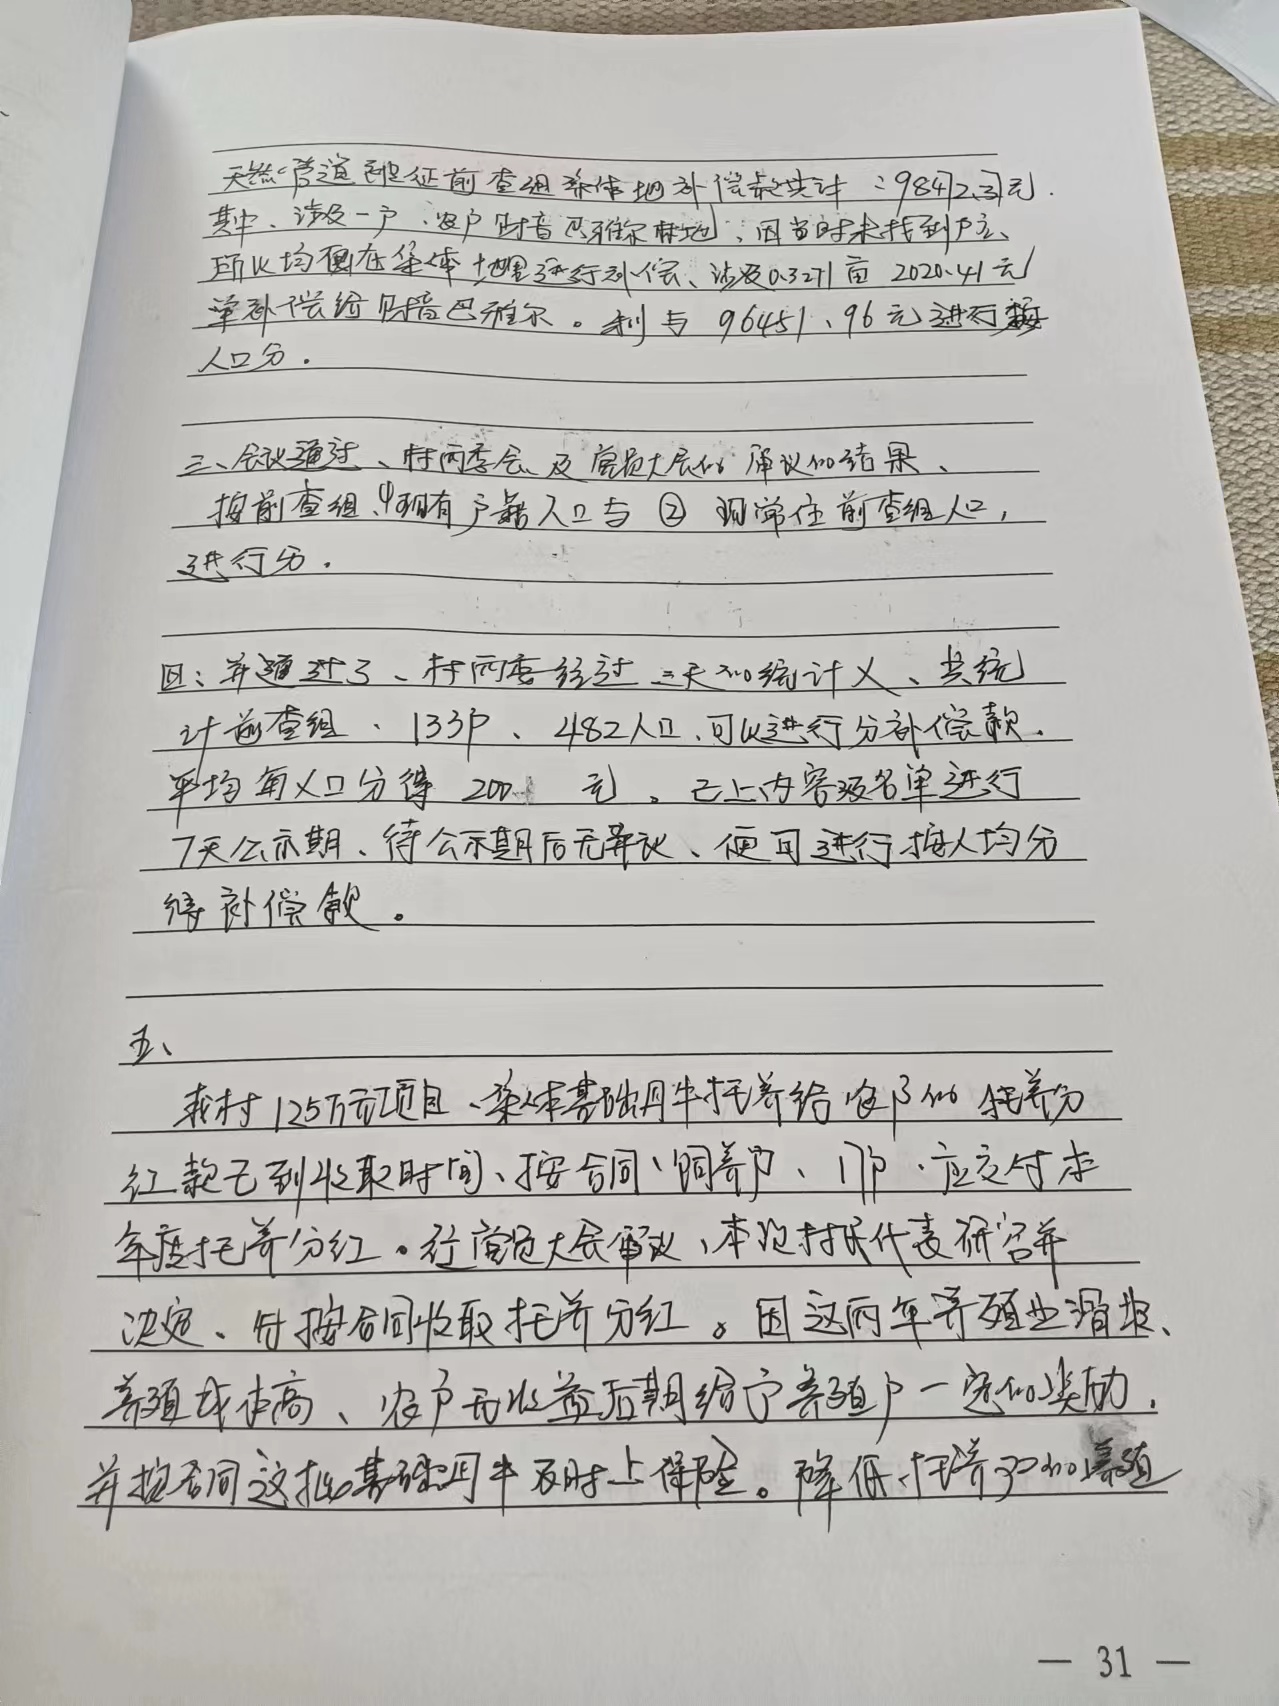 天然气管道 征前查组集体地补偿款共计:98472.37元.
其中、涉及一户、农户财音巴雅尔林地、因当时未找到户主、
所以均圈在集体地里进行补偿、涉及0.3271亩 2020.41元
单补偿给财音巴雅尔。剩与96451.96元进行按
人口分.
三、会议通过、村两委会及党员大会的审议的结果、
按前查组①现有户籍人口与②现常住前查组人口,
进行分.
四:并通过了、村两委经过三天的统计 、共统
计前查组、133户、482人口、可以进行分补偿款.
平均每人口分得 200 元。已上内容及名单进行
7天公示期、待公示期后无异议、便可进行按人均分
得补偿款。
五、
我村125万元项目、集体基础母牛托养给农户的托养分
红款已到收取时间、按合同、饲养户、17户、应交付本
年度托养分红。经党员大会审议、本次村民代表研究并
决定、 按合同收取托养分红。因这两年养殖业滑坡、
养殖成本高、农户无收益后期给予养殖户一定的奖励.
并按合同这批基础母牛及时上保险。降低托养户的养殖
— 31 —